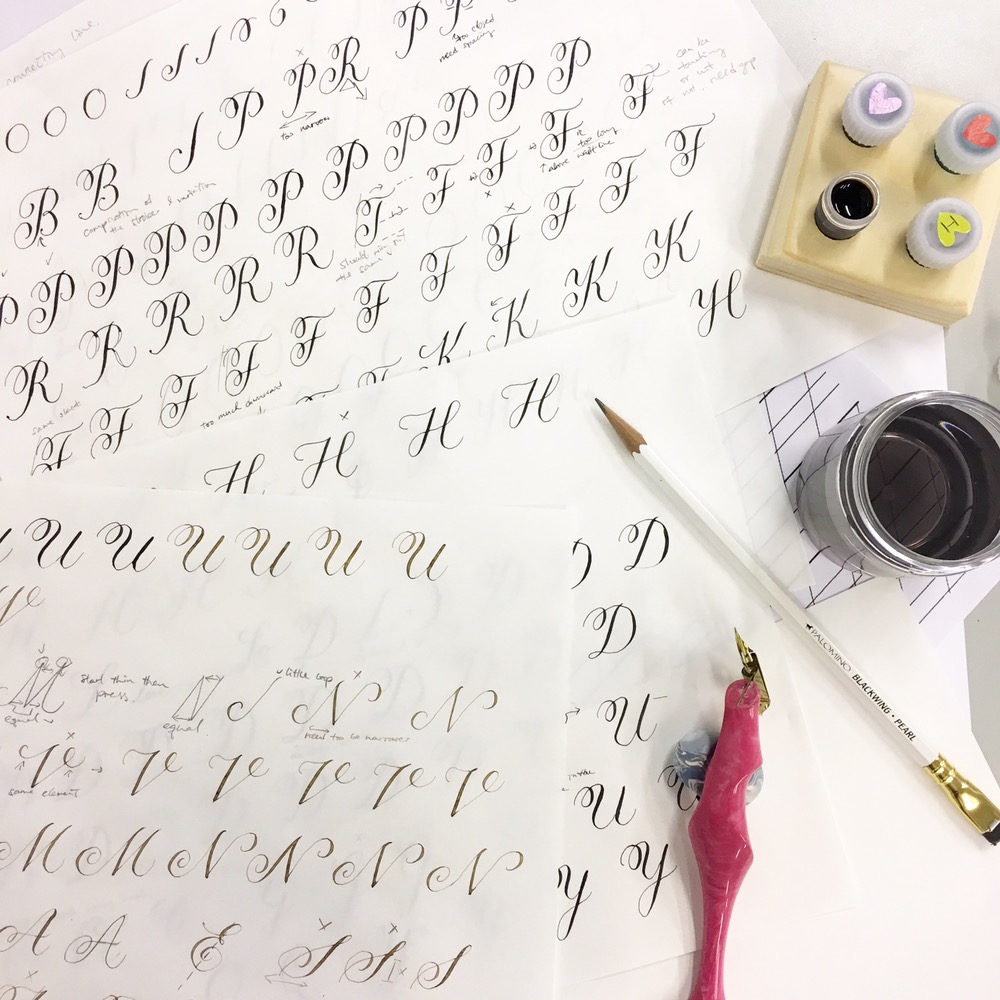 connecting line
O O O
P P
too closed
need spacing
P R
too narrow
B B
compilation of
the strokes & variation
can be
touching
or not
if not, need gap
P P P P P P P P P
F F F F
too long
R R R R R
should not be
the same
F F F F F F F F
K K K
H
same slant
too much downward
H H H H
U U U U U U U
start thin then
press
equal
equal
little loop
N N
need to be narrower
V V V V V V
same element
M M N N N N
A A E S S S
D
D
U
U
Y Y
I
PALOMINO BLACKWING • PEARL